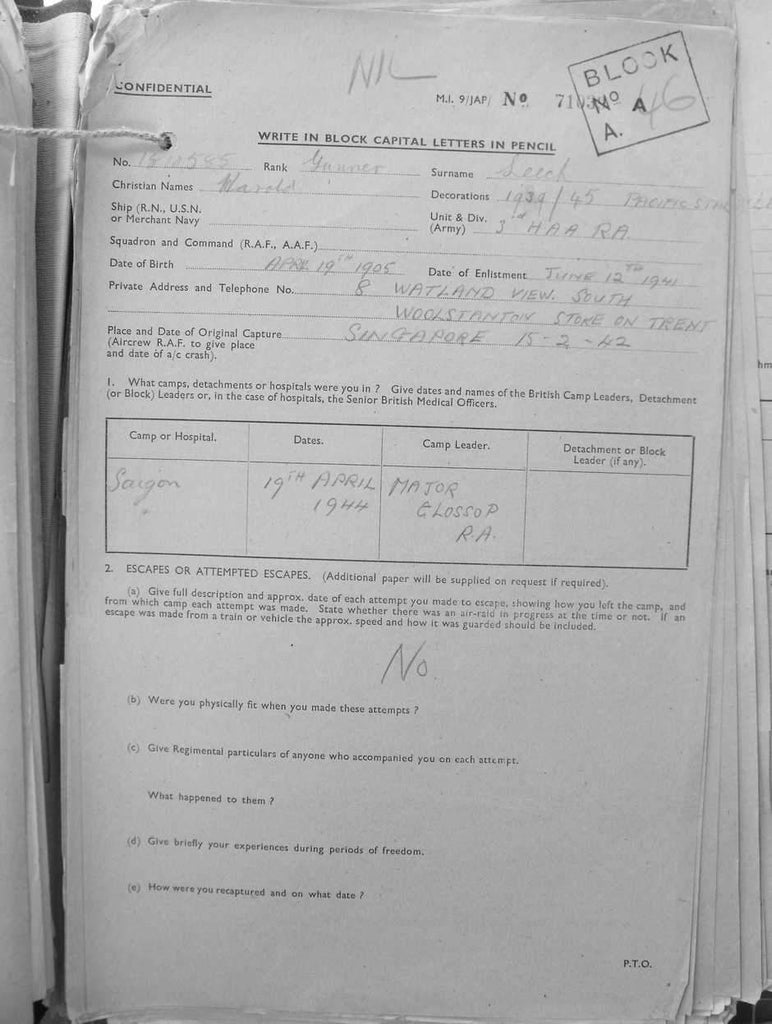 NIL
BLOCK
No A
A. 46
CONFIDENTIAL
M.I. 9/JAP/ No
WRITE IN BLOCK CAPITAL LETTERS IN PENCIL
No. Rank Gunner Surname Leech
Christian Names Harold Decorations 1939/45 PACIFIC STAR
Ship (R.N., U.S.N.
or Merchant Navy
Unit & Div. 3rd HAA RA
(Army)
Squadron and Command (R.A.F., A.A.F.)
Date of Birth APRIL 19TH 1905 Date of Enlistment JUNE 12TH 1941
Private Address and Telephone No. 8 WATLAND VIEW. SOUTH
WOOLSTANTON STOKE ON TRENT
Place and Date of Original Capture SINGAPORE 15-2-42
(Aircrew R.A.F. to give place
and date of a/c crash).
1. What camps, detachments or hospitals were you in ? Give dates and names of the British Camp Leaders, Detachment
(or Block) Leaders or, in the case of hospitals, the Senior British Medical Officers.
Camp or Hospital. Dates. Camp Leader. Detachment or Block
Leader (if any).
Saigon 19TH APRIL MAJOR
1944 GLOSSOP
R.A.
2. ESCAPES OR ATTEMPTED ESCAPES. (Additional paper will be supplied on request if required).
(a) Give full description and approx. date of each attempt you made to escape, showing how you left the camp, and
from which camp each attempt was made. State whether there was an air-raid in progress at the time or not. If an
escape was made from a train or vehicle the approx. speed and how it was guarded should be included.
No.
(b) Were you physically fit when you made these attempts ?
(c) Give Regimental particulars of anyone who accompanied you on each attempt.
What happened to them ?
(d) Give briefly your experiences during periods of freedom.
(e) How were you recaptured and on what date ?
P.T.O.